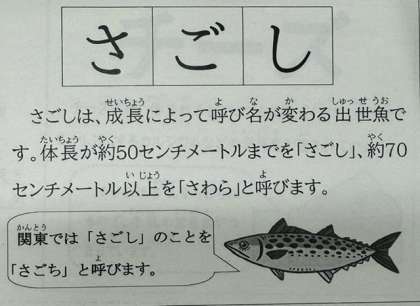 さごし
さごしは、成長によって呼び名が変わる出世魚で
す。体長が約50センチメートルまでを「さごし」、約70
センチメートル以上を「さわら」と呼びます。
関東では「さごし」のことを
「さごち」と呼びます。